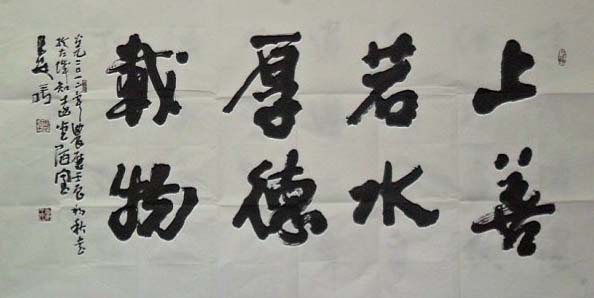 上善
若水
厚德
載物
公元二〇一二年農曆壬辰初秋